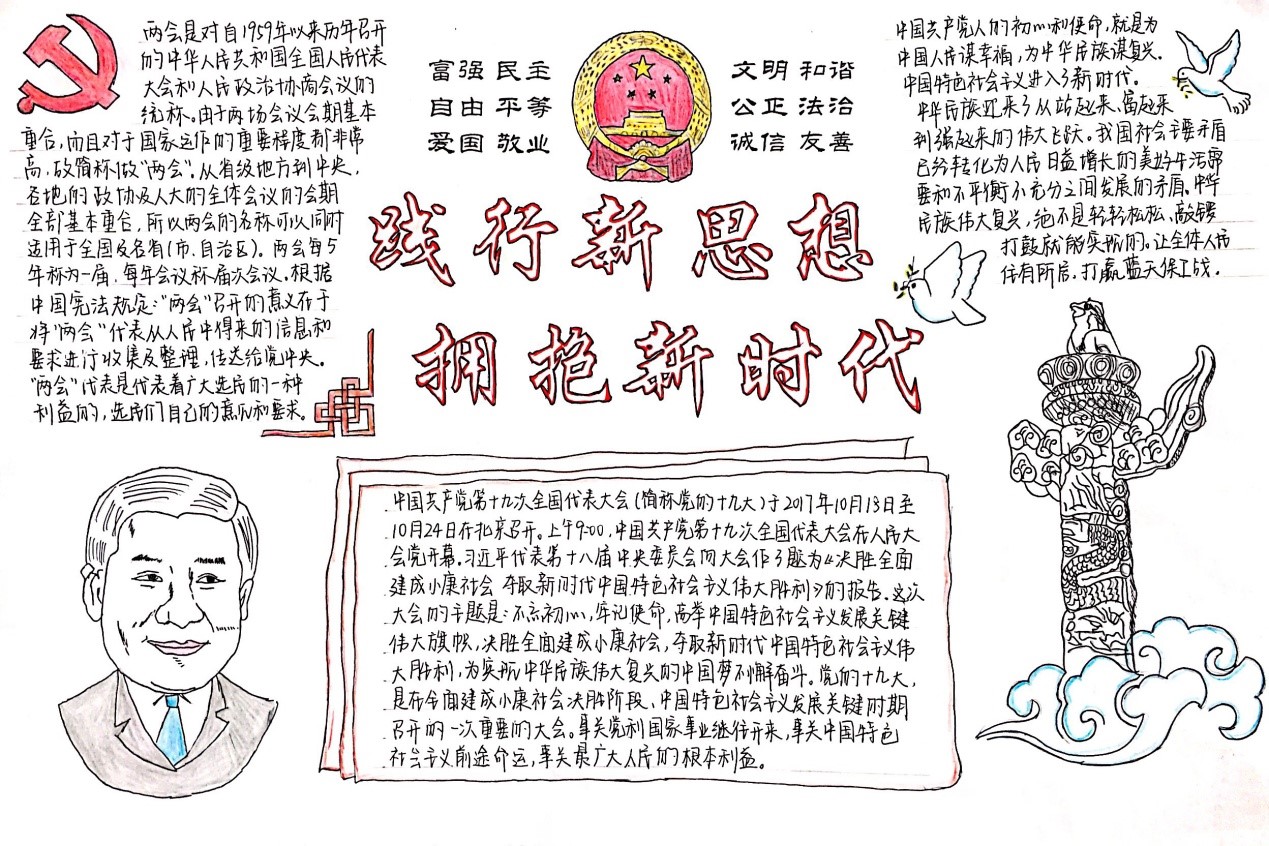 两会是对自1959年以来历年召开
的中华人民共和国全国人民代表
大会和人民政治协商会议的
统称。由于两场会议会期基本
重合,而且对于国家运作的重要程度都非常
高,故简称做“两会”。从省级地方到中央,
各地的政协及人大的全体会议的会期
全部基本重合,所以两会的名称可以同时
适用于全国及各省(市、自治区)。两会每5
年称为一届,每年会议称届次会议。根据
中国宪法规定:“两会”召开的意义在于
将“两会”代表从人民中得来的信息和
要求进行收集及整理,传达给党中央。
“两会”代表是代表着广大选民的一种
利益的,选民们自己的意见和要求。
富强 民主
自由 平等
爱国 敬业
文明 和谐
公正 法治
诚信 友善
践行新思想
拥抱新时代
中国共产党人的初心和使命,就是为
中国人民谋幸福,为中华民族谋复兴。
中国特色社会主义进入了新时代。
中华民族迎来了从站起来、富起来
到强起来的伟大飞跃。我国社会主要矛盾
已经转化为人民日益增长的美好生活需
要和不平衡不充分之间发展的矛盾。中华
民族伟大复兴,绝不是轻轻松松、敲锣
打鼓就能实现的。让全体人民
住有所居。打赢蓝天保卫战。
中国共产党第十九次全国代表大会(简称党的十九大)于2017年10月18日至
10月24日在北京召开。上午9:00,中国共产党第十九次全国代表大会在人民大
会党开幕。习近平代表第十八届中央委员会向大会作了题为《决胜全面
建成小康社会 夺取新时代中国特色社会主义伟大胜利》的报告。这次
大会的主题是:不忘初心,牢记使命,高举中国特色社会主义发展关键
伟大旗帜,决胜全面建成小康社会,夺取新时代中国特色社会主义伟
大胜利,为实现中华民族伟大复兴的中国梦不懈奋斗。党的十九大,
是在全面建成小康社会决胜阶段、中国特色社会主义发展关键时期
召开的一次重要的大会。事关党和国家事业继往开来,事关中国特色
社会主义前途命运,事关最广大人民的根本利益。